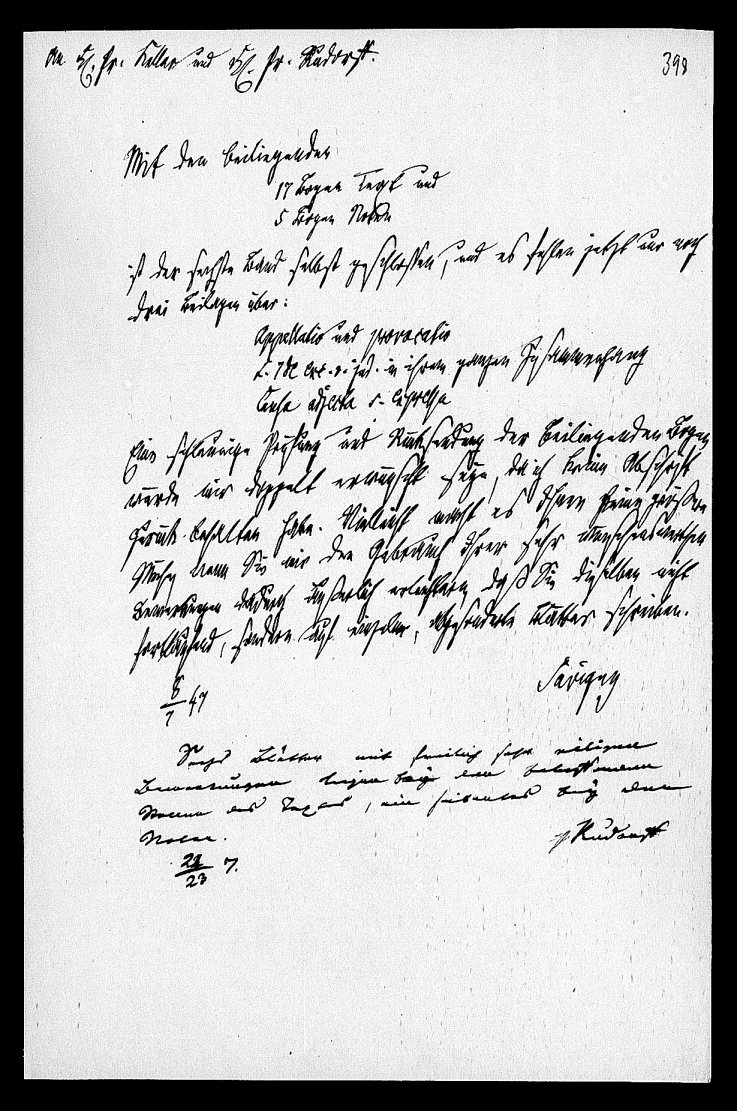 An H. Pr. Keller und H. Pr. Rudorff.
398
Mit den beiliegenden
17 Bogen Text und
5 Bogen Noten
ist der sechste Band selbst geschlossen, und es fehlen jetzt nur noch
drei Beilagen über:
Appellatio und provocatio
L. 7 de exc. r. jud. in ihrem ganzen Zusammenhang
Causa adjecta s. expressa
Eine schleunige Prüfung und Rücksendung der beiliegenden Bogen
würde mir doppelt erwünscht seyn, da ich keine Abschrift
zurück behalten habe. Vielleicht macht es Ihnen keine größere
Mühe wenn Sie mir den Gebrauch Ihrer sehr wünschenswerthen
Bemerkungen dadurch äußerlich erleichtern daß Sie dieselben nicht
fortlaufend, sondern auf einzelne, abgesonderte Blätter schreiben.
Savigny
8/7 47
Sechs Blätter mit freilich sehr eiligen
Bemerkungen liegen bey den betreffenden
des Textes, ein siebentes bey den
Noten.
Rudorff
22/23 7.